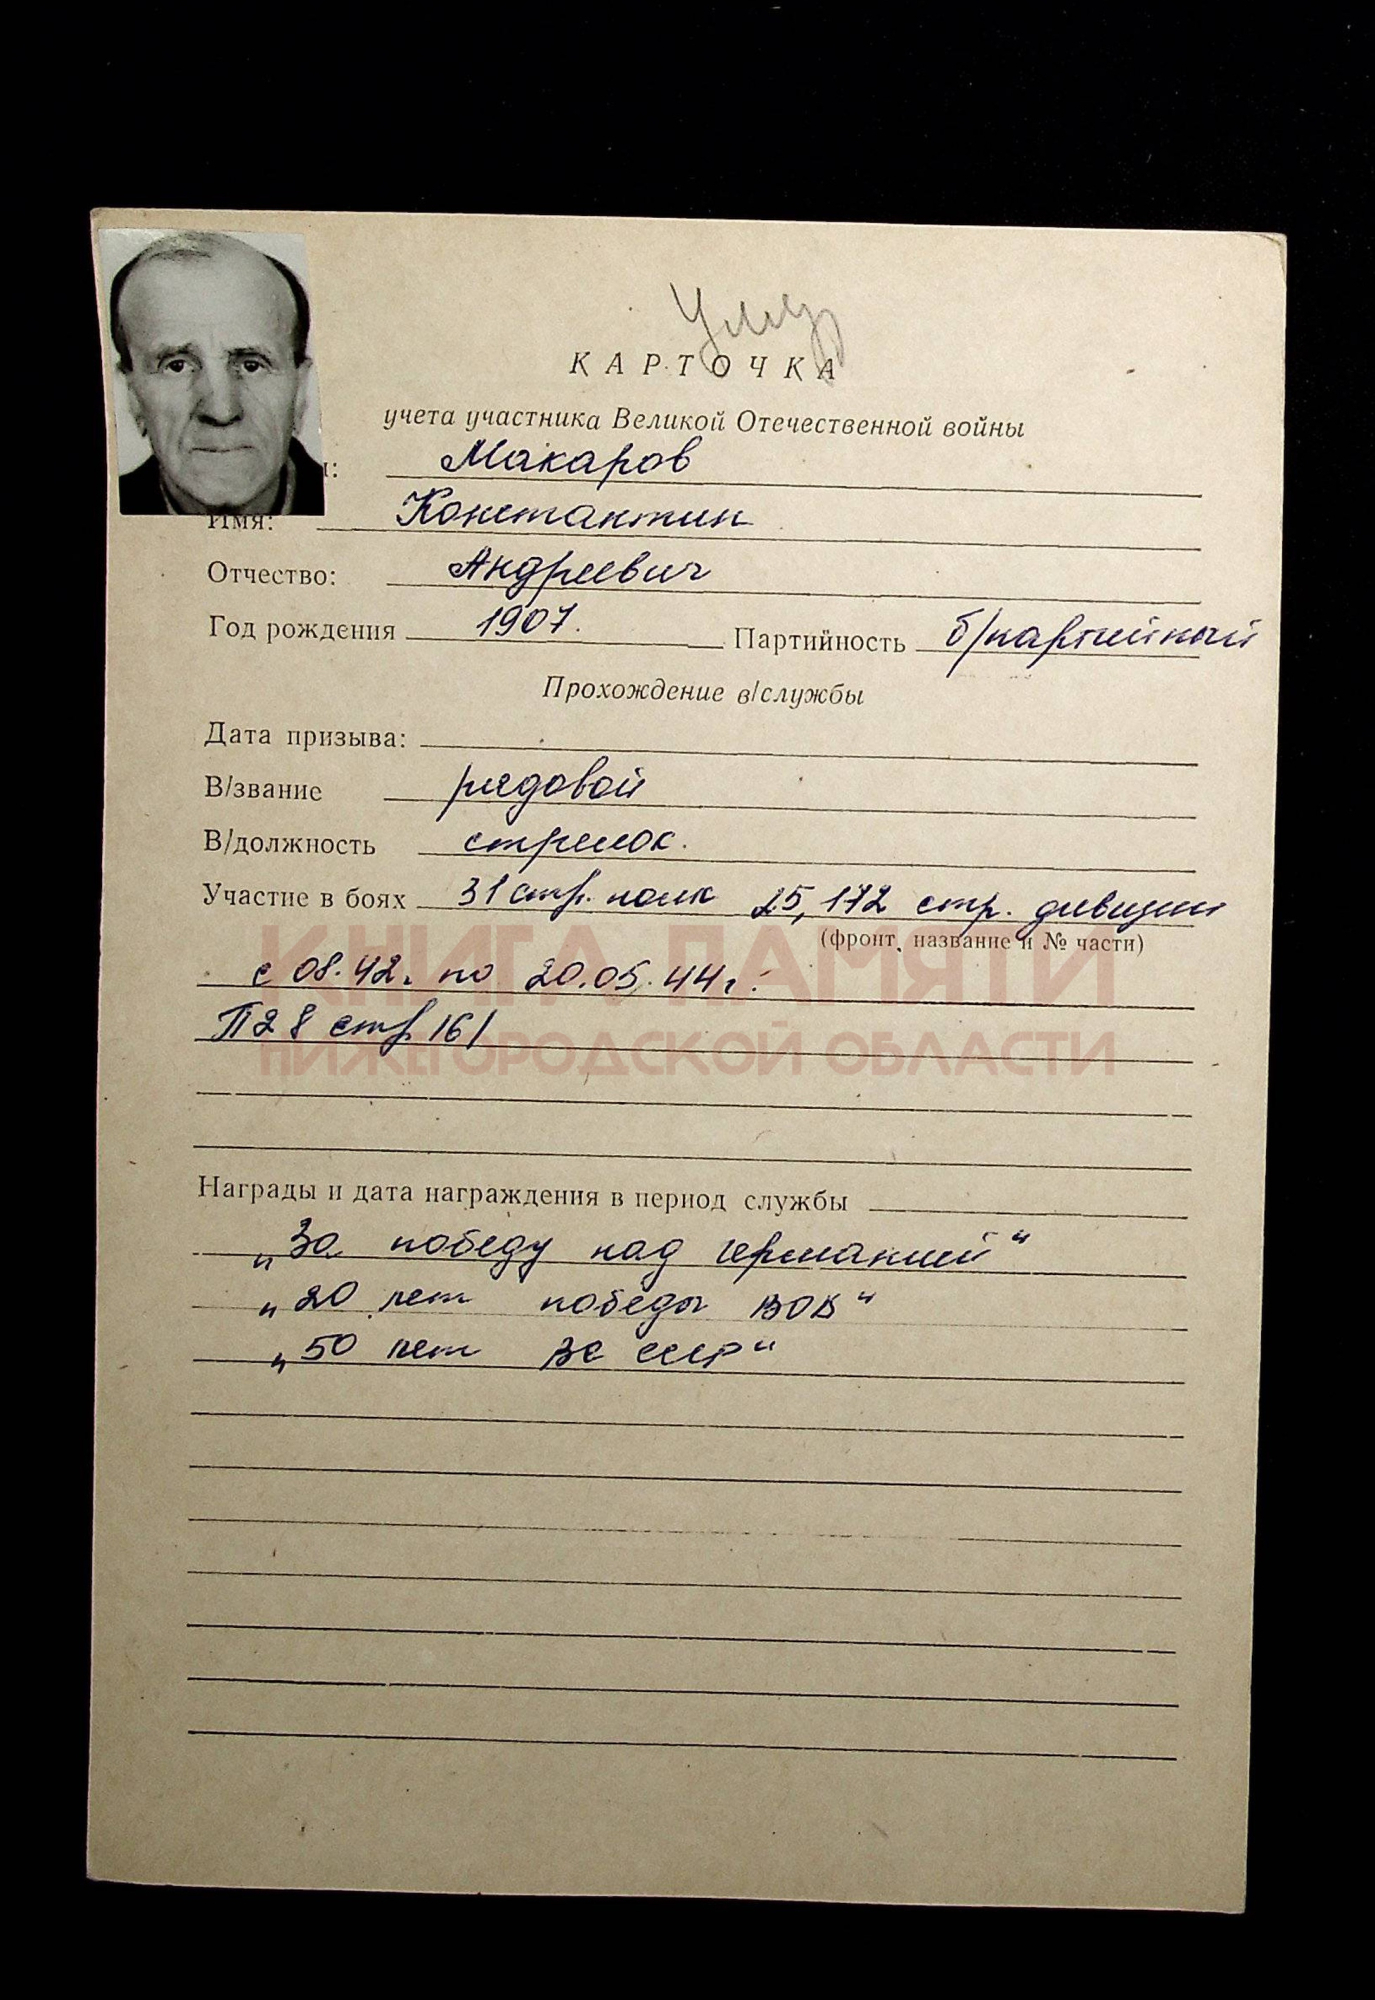 Умер
КАРТОЧКА
учета участника Великой Отечественной войны
: Макаров
Имя: Константин
Отчество: Андреевич
Год рождения 1907. Партийность б/партийный
Прохождение в/службы
Дата призыва:
В/звание рядовой
В/должность стрелок.
Участие в боях 31 стр. полк 25, 172 стр. дивизии
(фронт, название и № части)
с 08.42г. по 20.05.44г.
П28 стр 161
КНИГА ПАМЯТИ
НИЖЕГОРОДСКОЙ ОБЛАСТИ
Награды и дата награждения в период службы
„За победу над германией“
„20 лет победы ВОВ“
„50 лет ВС СССР“